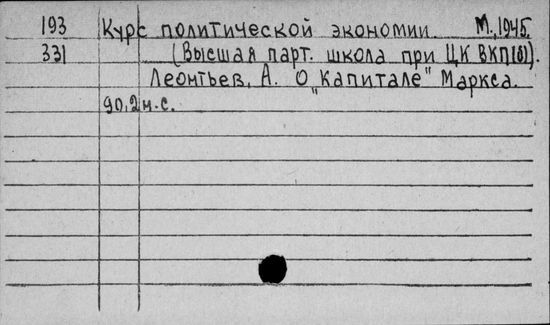 193 Курс политической экономии. М., 1945.
331 (Высшая парт. школа при ЦК ВКП(б).
Леонтьев, А. О „Капитале" Маркса.
90,2 н.с.